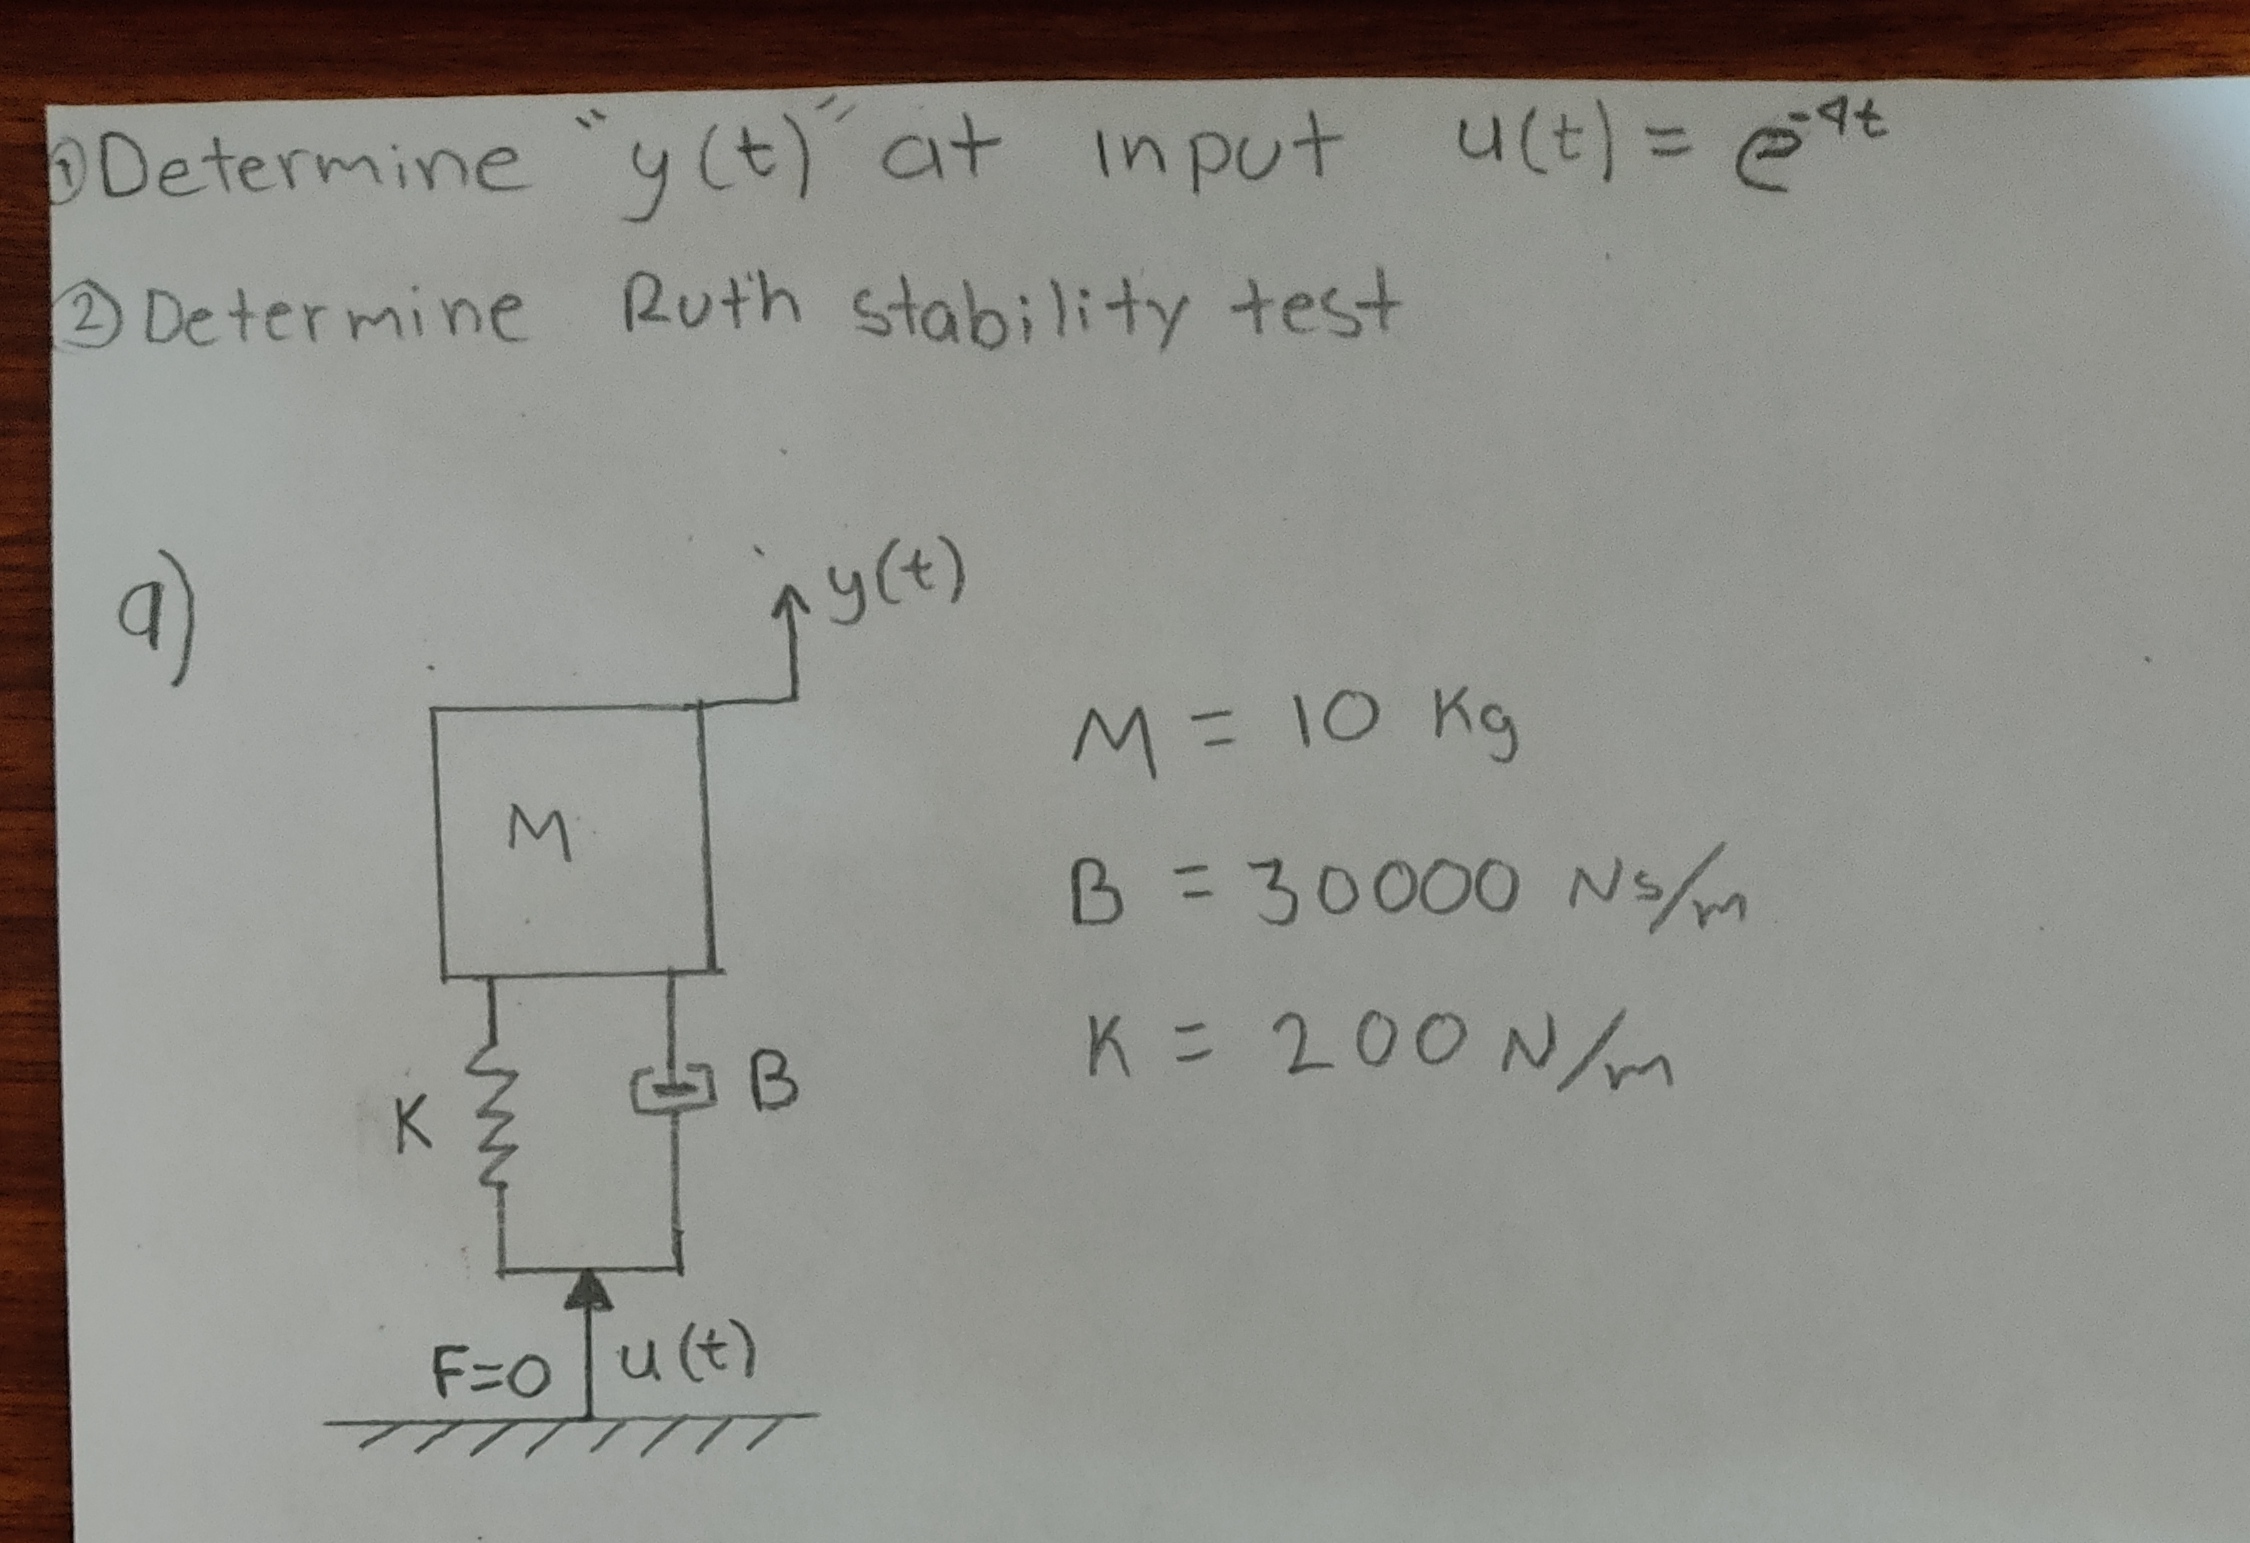 ① Determine "y(t)" at input u(t) = e^-4t
② Determine Ruth stability test
a)
y(t)
M = 10 Kg
M
B = 30000 Ns/m
K = 200 N/m
K
B
F=0 u(t)